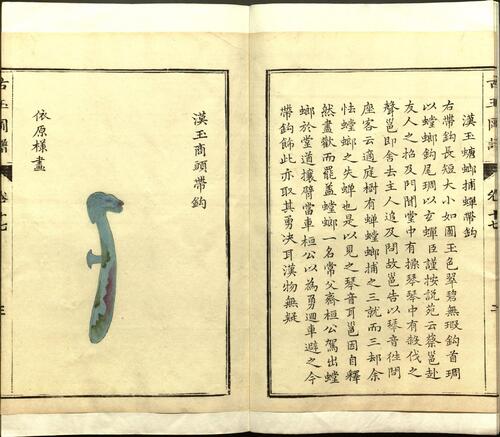 漢玉螳螂捕蟬帶鉤
右帶鉤長短大小如圖玉色翠碧無瑕鉤首琱
以螳螂鉤尾琱以玄蟬臣謹按說苑云蔡邕赴
友人之招及門聞堂中有操琴琴中有殺伐之
聲邕即舍去主人追及問故邕告以琴音徃問
座客云適庭樹有蟬螳螂捕之三就而三却余
恠螳螂之失蟬也是以見之琴音耳邕固自釋
然盡歡而罷盖螳螂一名常父齊桓公駕出螳
螂於堂道攘臂當車桓公以為勇迴車避之今
帶鉤飾此亦取其勇决耳漢物無疑
漢玉商頭帶鉤
依原樣畫
古玉圖譜 卷十七 三